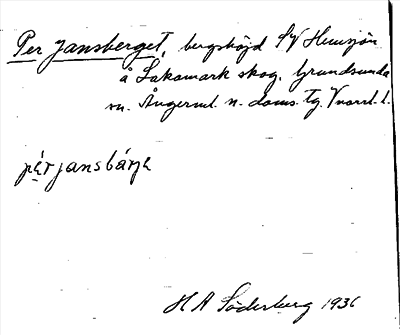 Per Jansberget, bergshöjd SV Hemsjön
å Sakamark skog. Grundsunda
sn. Ångerml. n. doms. Tg. Vnorrl. l.
pèrjansbárjə
H A Söderberg 1936